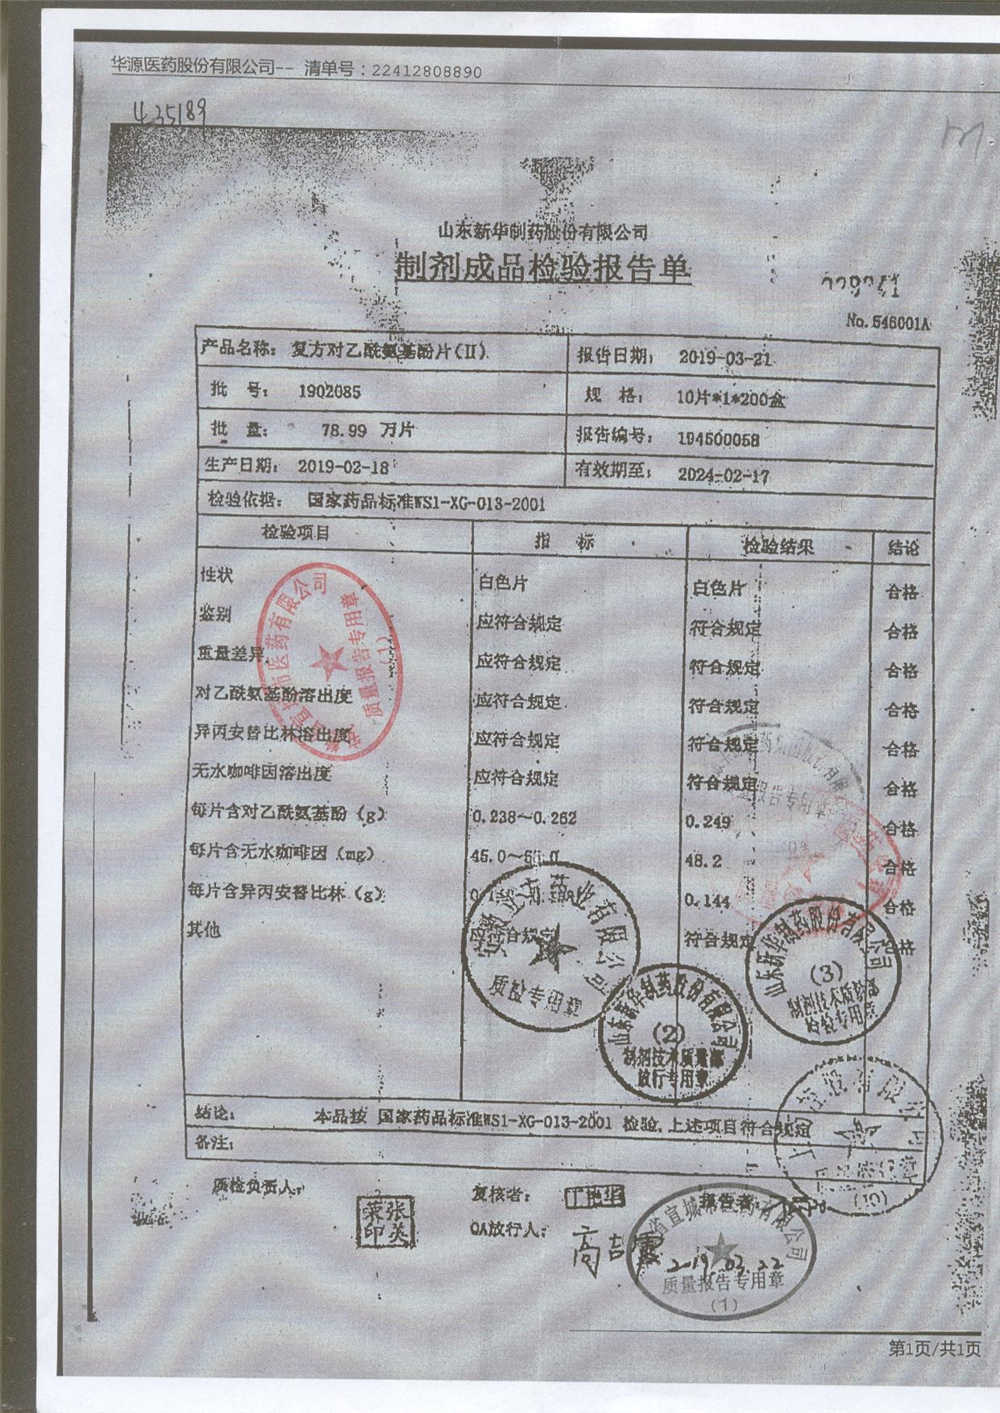 华源医药股份有限公司-- 清单号：22412808890
435189
山东新华制药股份有限公司
制剂成品检验报告单
No.546001A
产品名称： 复方对乙酰氨基酚片(II) 报告日期： 2019-03-21
批 号： 1902085 规 格： 10片*1*200盒
批 量： 78.99 万片 报告编号： 194500058
生产日期： 2019-02-18 有效期至： 2024-02-17
检验依据： 国家药品标准WS1-XG-013-2001
检验项目 指 标 检验结果 结论
性状 白色片 白色片 合格
鉴别 应符合规定 符合规定 合格
重量差异 应符合规定 符合规定 合格
对乙酰氨基酚溶出度 应符合规定 符合规定 合格
异丙安替比林溶出度 应符合规定 符合规定 合格
无水咖啡因溶出度 应符合规定 符合规定 合格
每片含对乙酰氨基酚（g） 0.238～0.262 0.249 合格
每片含无水咖啡因（mg） 45.0～ 48.2 合格
每片含异丙安替比林（g） 0.144 合格
其他 应符合规定 符合规定 合格
质量报告专用章
(1)
质检专用章
山东新华制药股份有限公司
(2)
制剂技术质量部
放行专用章
山东新华制药股份有限公司
(3)
制剂技术质量部
检验专用章
结论： 本品按 国家药品标准WS1-XG-013-2001 检验,上述项目符合规定
备注：
(10)
质检负责人： 复核者： 报告者：
QA放行人： 高
2019.03.22
质量报告专用章
(1)
第1页/共1页